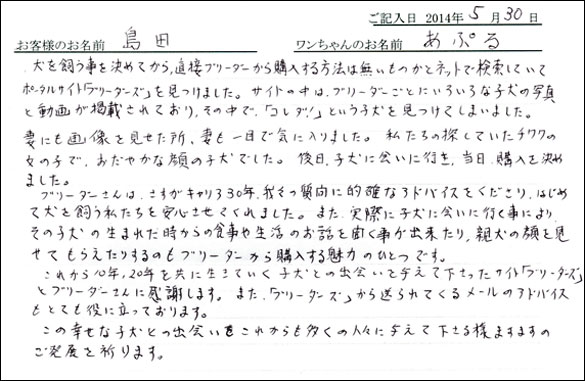 ご記入日 2014年 5月 30日
お客様のお名前 島田 ワンちゃんのお名前 あぷる
犬を飼う事を決めてから、直接ブリーダーから購入する方法は無いものかとネットで検索していて
ポータルサイト「ブリーダーズ」を見つけました。サイトの中は、ブリーダーごとにいろいろな子犬の写真
と動画が掲載されており、その中で、「コレダ!」という子犬を見つけてしまいました。
妻にも画像を見せた所、妻も一目で気に入りました。私たちの探していたチワワの
女の子で、おだやかな顔の子犬でした。後日、子犬に会いに行き、当日、購入を決め
ました。
ブリーダーさんは、さすがキャリア30年、我々の質問に的確なアドバイスをくださり、はじめ
て犬を飼う私たちを安心させてくれました。また、実際に子犬に会いに行く事により、
その子犬の生まれた時からの食事や生活のお話を聞く事が出来たり、親犬の顔を見
せてもらえたりするのもブリーダーから購入する魅力のひとつです。
これから10年、20年を共に生きていく子犬との出会いを与えて下さったサイト「ブリーダーズ」
とブリーダーさんに感謝します。また、「ブリーダーズ」から送られてくるメールのアドバイス
もとても役に立っております。
この幸せな子犬との出会いをこれからも多くの人々に与えて下さる様ますますの
ご発展を祈ります。